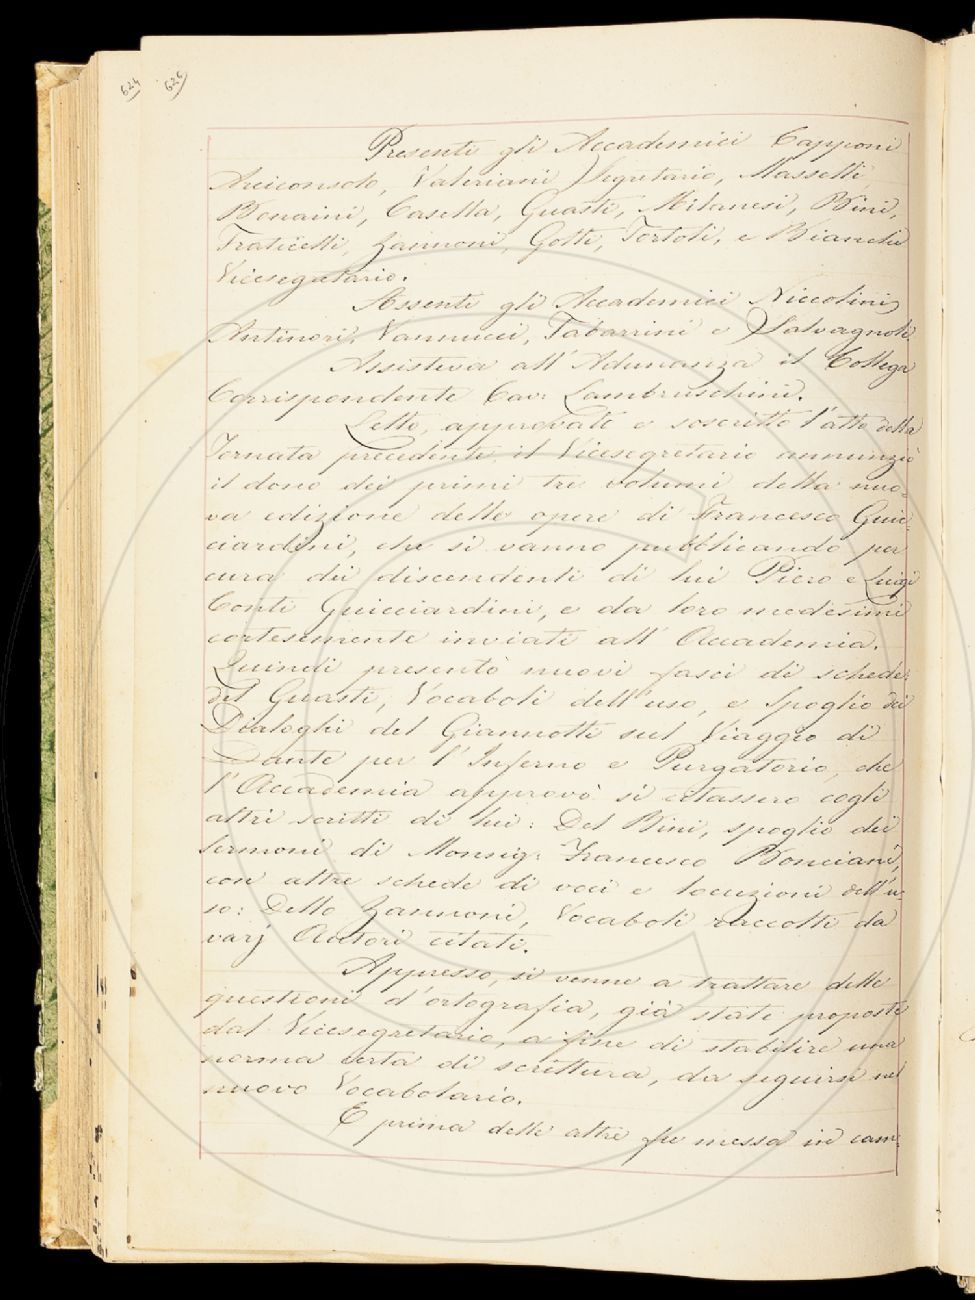 624
626
Presenti gli Accademici Capponi
Arciconsolo, Valeriani Segretario, Masselli,
Bonaini, Casella, Guasti, Milanesi, Bini,
Fraticelli, Zannoni, Gotti, Tortoli, e Bianchi
Vicesegretario.
Assenti gli Accademici Niccolini,
Antinori, Vannucci, Tabarrini e Salvagnoli.
Assisteva all'Adunanza il Collega
Corrispondente Cav: Lambruschini.
Letto, approvato e soscritto l'atto della
Tornata precedente, il Vicesegretario annunziò
il dono dei primi tre volumi della nuo-
va edizione delle opere di Francesco Guic-
ciardini, che si vanno pubblicando per
cura dei discendenti di lui Piero e Luigi
Conti Guicciardini, e da loro medesimi
cortesemente inviati all'Accademia.
Quindi presentò nuovi fasci di schede:
del Guasti, Vocaboli dell'uso, e Spoglio dei
Dialoghi del Giannotti sul Viaggio di
Dante per l'Inferno e Purgatorio, che
l'Accademia approvò si citassero cogli
altri scritti di lui: Del Bini, spoglio dei
Sermoni di Monsig: Francesco Bonciani,
con altre schede di voci e locuzioni dell'u-
so: Dello Zannoni, Vocaboli raccolti da
varj Autori citati.
Appresso, si venne a trattare delle
questioni d'ortografia, già state proposte
dal Vicesegretario, a fine di stabilire una
norma certa di scrittura, da seguirsi nel
nuovo Vocabolario.
E prima delle altre fu messa in cam-